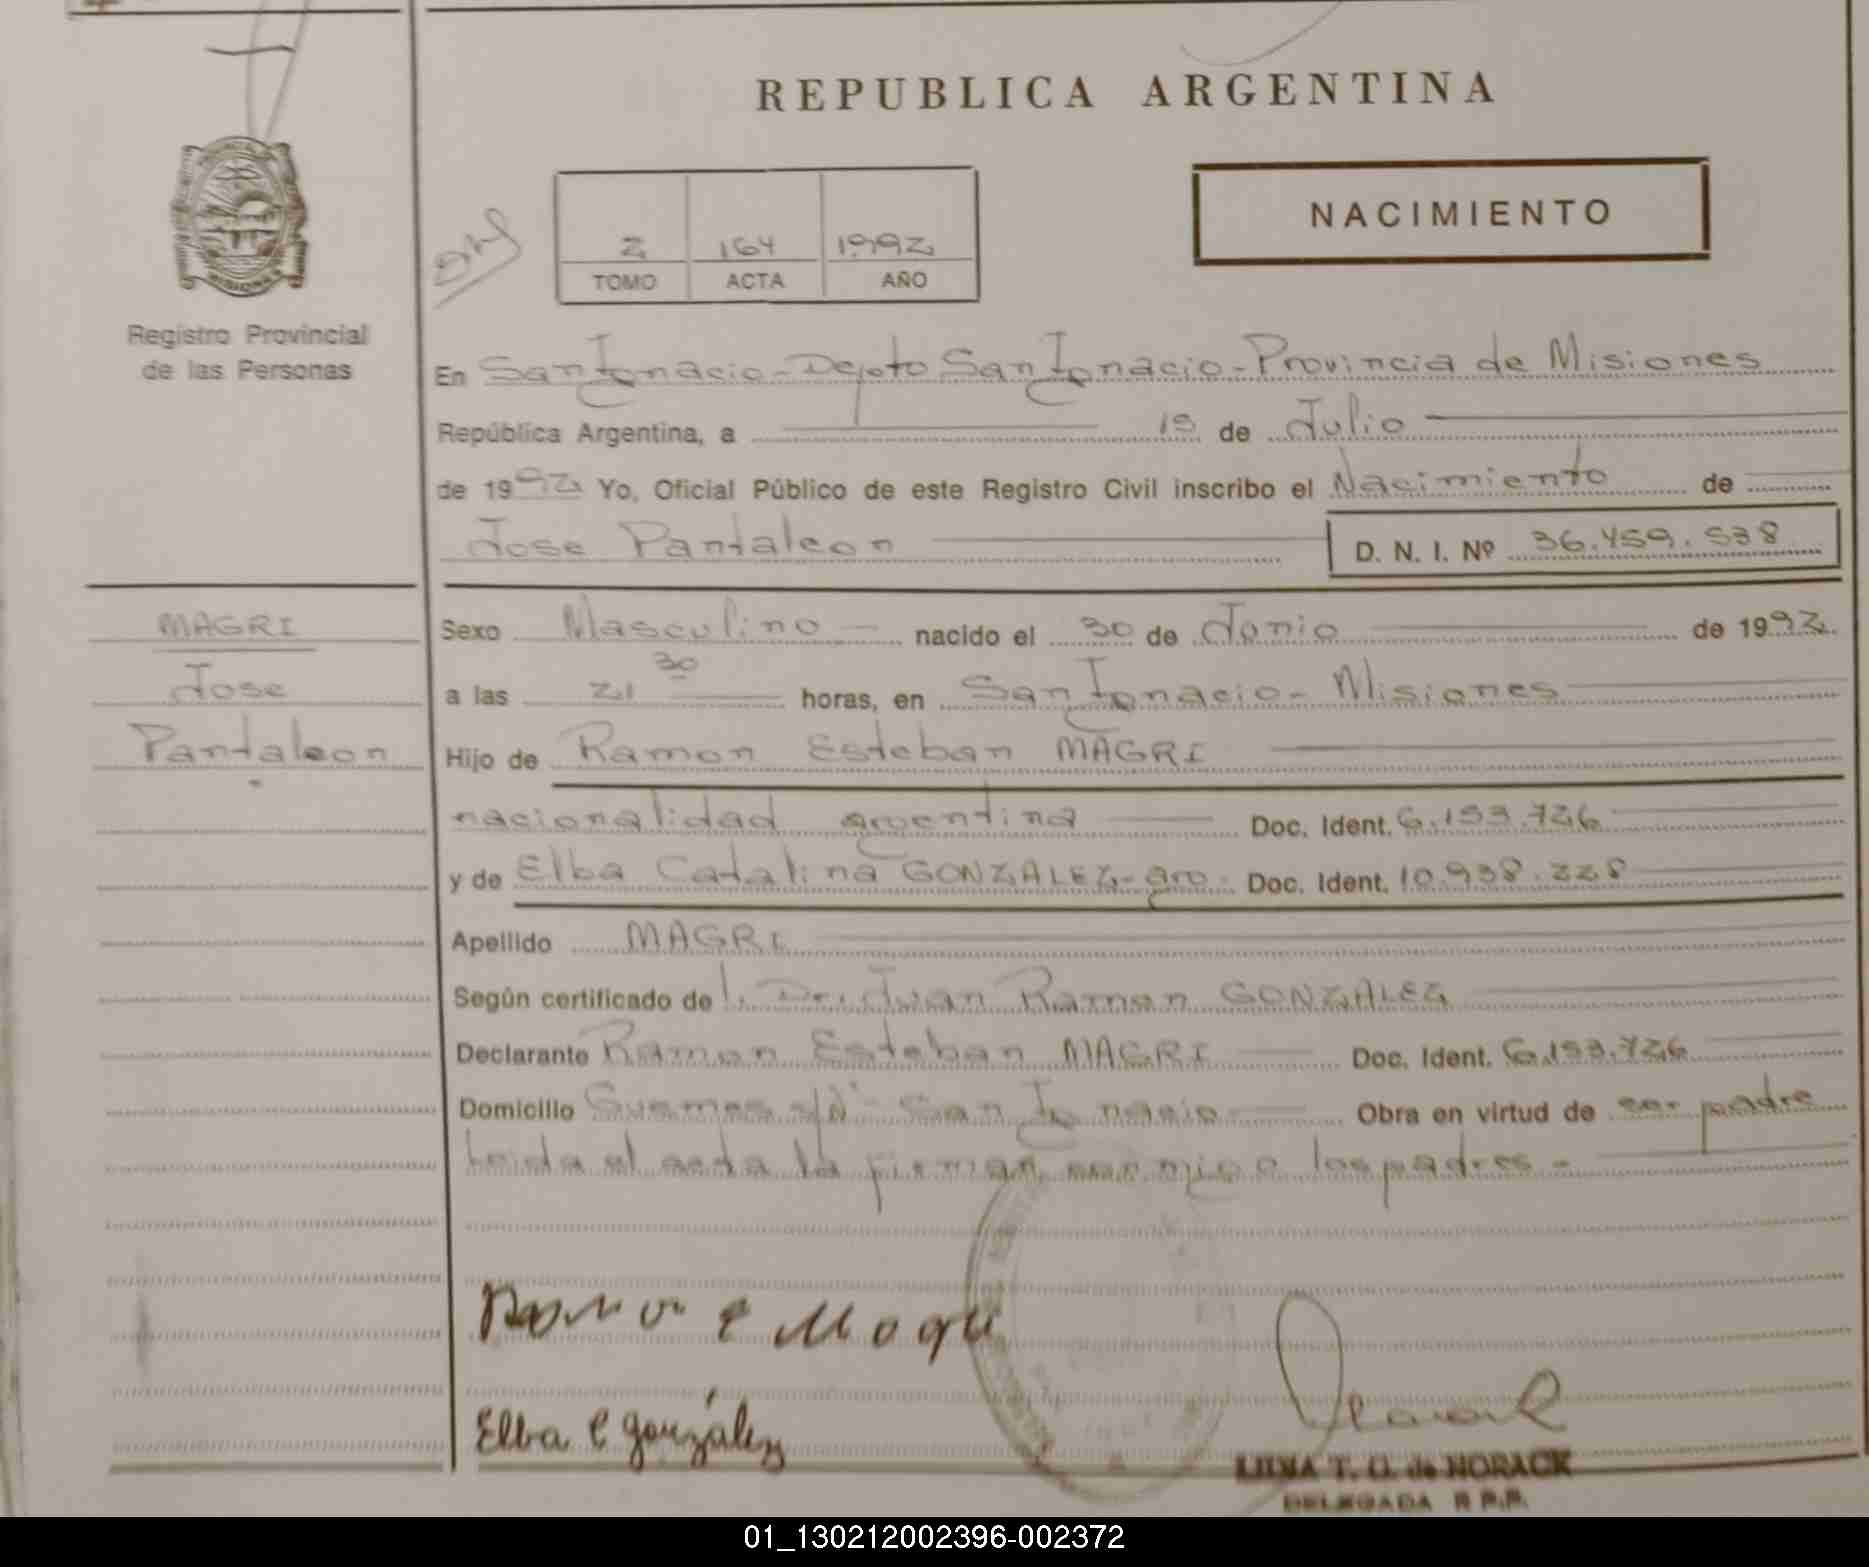 REPUBLICA ARGENTINA
NACIMIENTO
2 164 1992
TOMO ACTA AÑO
Registro Provincial
de las Personas
En San Ignacio - Depto San Ignacio - Provincia de Misiones
República Argentina, a 15 de Julio
de 1992 Yo, Oficial Público de este Registro Civil inscribo el Nacimiento de
Jose Pantaleon D. N. I. Nº 36.459.538
MAGRI
Jose
Pantaleon
Sexo Masculino nacido el 30 de Junio de 1992
a las 21 30 horas, en San Ignacio - Misiones
Hijo de Ramon Esteban MAGRI
nacionalidad argentina Doc. Ident. 6.153.726
y de Elba Catalina GONZALEZ - arg. Doc. Ident. 10.938.228
Apellido MAGRI
Según certificado de l. Dr. Juan Ramon GONZALEZ
Declarante Ramon Esteban MAGRI Doc. Ident. 6.153.726
Domicilio Guemes s/n° San Ignacio Obra en virtud de ser padre
Leida el acta la firman conmigo los padres -
Ramon E Magri
Elba C González
T. G. de NORACK
DELEGADA R.P.P.
01_130212002396-002372